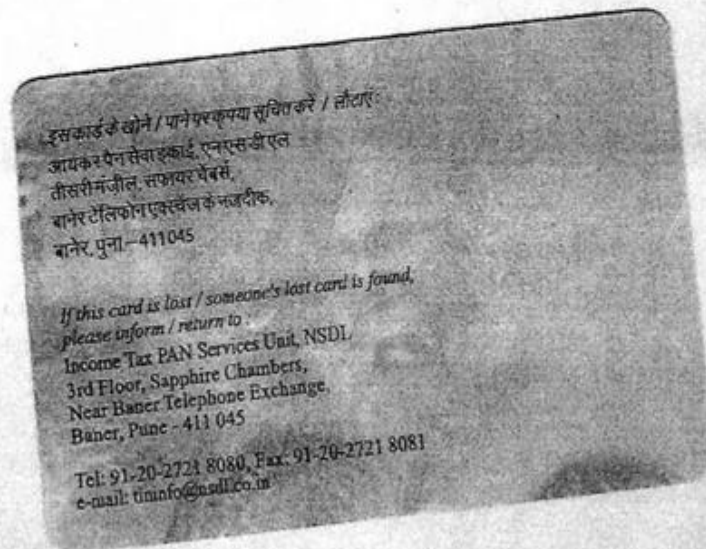 इस कार्ड के खोने / पाने पर कृपया सूचित करें / लौटाएं :
आयकर पैन सेवा इकाई, एनएसडीएल
तीसरी मंजील, सफायर चेंबर्स,
बानेर टेलिफोन एक्स्चेंज के नजदीक,
बानेर, पुना - 411045
If this card is lost / someone's lost card is found,
please inform / return to :
Income Tax PAN Services Unit, NSDL
3rd Floor, Sapphire Chambers,
Near Baner Telephone Exchange,
Baner, Pune - 411 045
Tel: 91-20-2721 8080, Fax: 91-20-2721 8081
e-mail: tininfo@nsdl.co.in